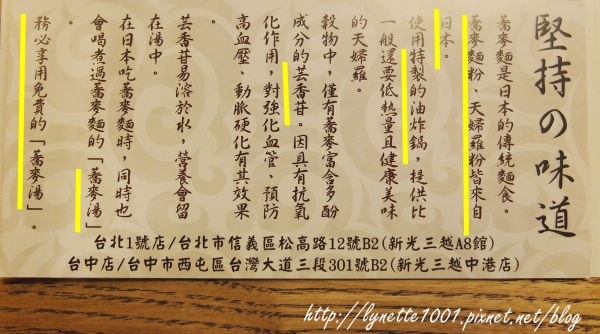 堅持の味道
蕎麥麵是日本的傳統麵食。
蕎麥麵粉、天婦羅粉皆來自
日本。
使用特製的油炸鍋，提供比
一般還要低熱量且健康美味
的天婦羅。
穀物中，僅有蕎麥富含多酚
成分的芸香苷。因具有抗氧
化作用，對強化血管、預防
高血壓、動脈硬化有其效果
。
芸香苷易溶於水，營養會留
在湯中。
在日本吃蕎麥麵時，同時也
會喝煮過蕎麥麵的「蕎麥湯」
。
務必享用免費的「蕎麥湯」。
台北1號店/台北市信義區松高路12號B2(新光三越A8館)
台中店/台中市西屯區台灣大道三段301號B2(新光三越中港店)
http://lynette1001.pixnet.net/blog